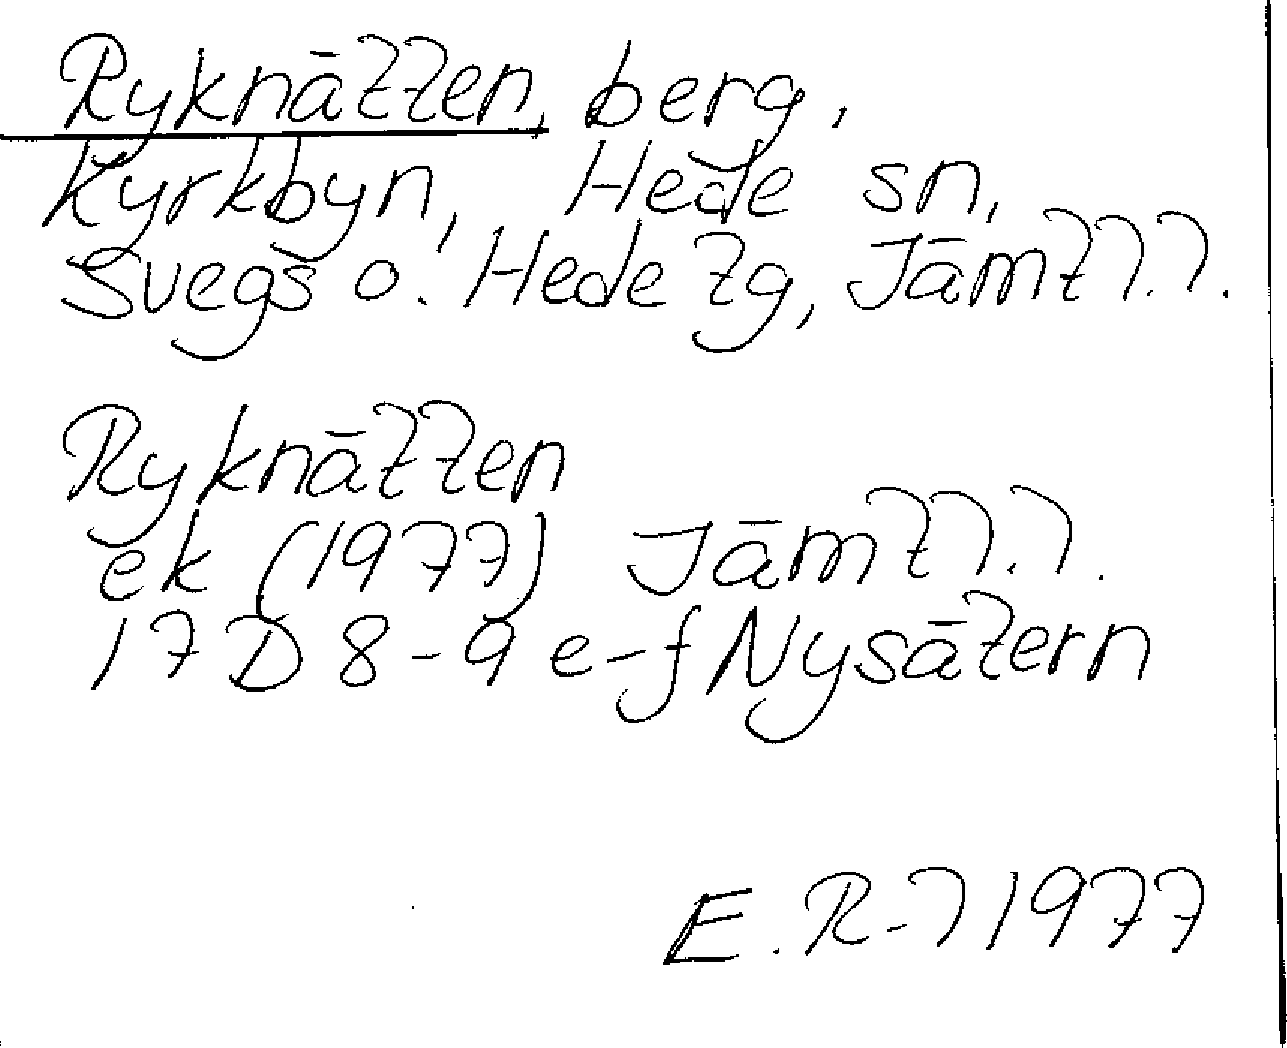 Ryknätten, berg,
Kyrkbyn, Hede sn,
Svegs o. Hede tg, Jämtl.l.
Ryknätten
ek (1977) Jämtl.l.
17D 8-9 e-f Nysätern
E.R-l 1977